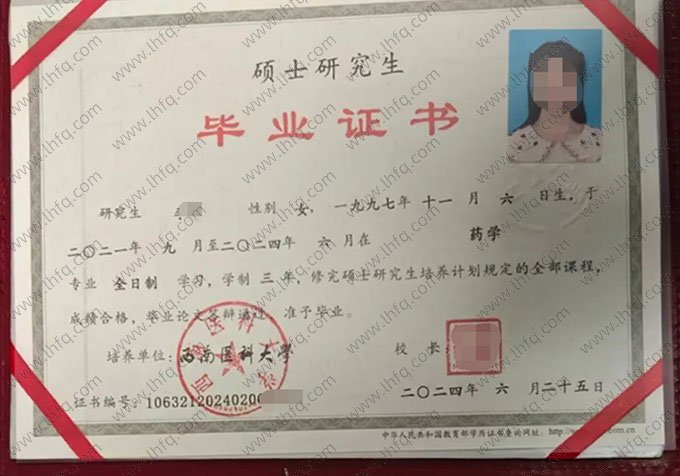 硕士研究生
毕业证书
研究生 性别 女, 一九九七年 十一 月 六 日生, 于
二〇二一年 九 月至二〇二四年 六 月在 药学
专业 全日制 学习, 学制 三 年, 修完硕士研究生培养计划规定的全部课程,
成绩合格, 毕业论文答辩通过, 准予毕业。
培养单位: 西南医科大学 校 长:
证书编号: 10632120240200 二〇二四年 六 月二十五日
中华人民共和国教育部学历证书查询网址: http://www.
www.lhfq.com